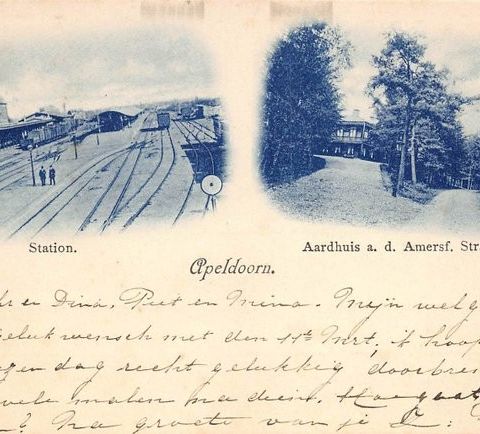 Station.
Aardhuis a. d. Amersf. Str
Apeldoorn.
en Dina, Piet en Mina. Mijn welg
gelukwensch met den 11t Mrt, ik hoop
dag recht gelukkig doorbren
vele malen na dezen.
? Na groete van je